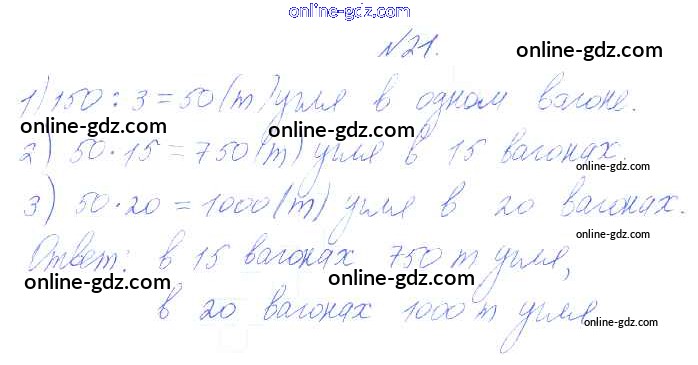 online-gdz.com
№21.
online-gdz.com
1) 150 : 3 = 50 (т) угля в одном вагоне.
online-gdz.com
online-gdz.com
2) 50 · 15 = 750 (т) угля в 15 вагонах.
online-gdz.com
online-gdz.com
3) 50 · 20 = 1000 (т) угля в 20 вагонах.
Ответ: в 15 вагонах 750 т угля,
online-gdz.com
online-gdz.com
в 20 вагонах 1000 т угля
online-gdz.com